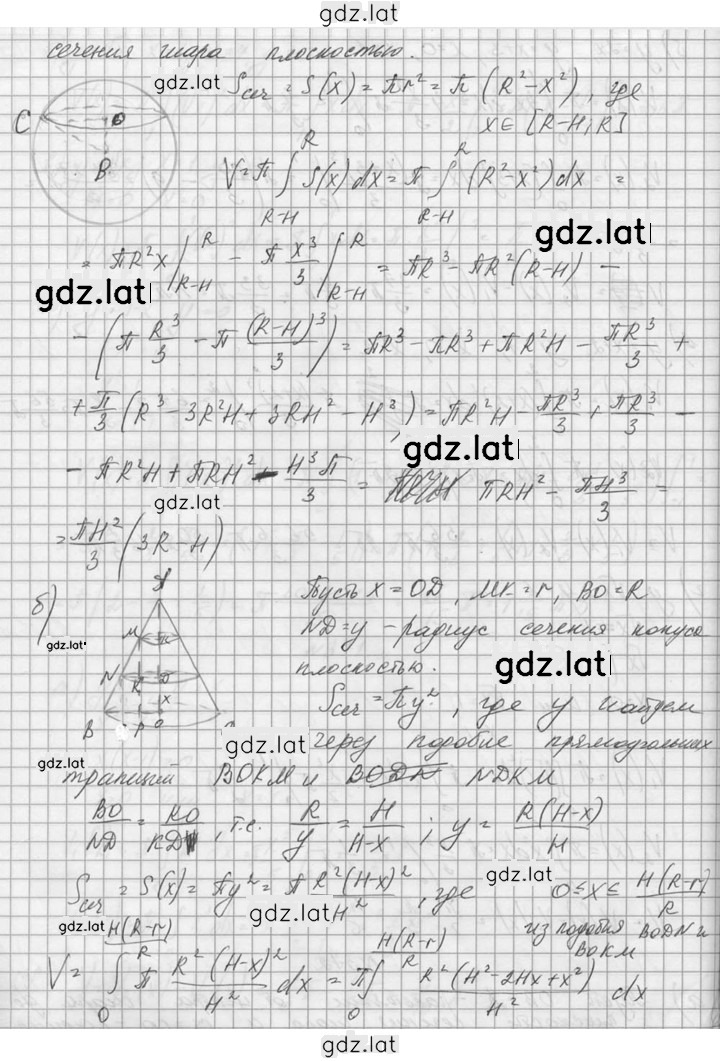 gdz.lat
сечения шара плоскостью.
gdz.lat
Sсеч = S(x) = πr² = π (R² - x²), где
C O B
x ∈ [R-H; R]
V = π ∫_{R-H}^{R} S(x) dx = π ∫_{R-H}^{R} (R² - x²) dx =
gdz.lat
= πR²x |_{R-H}^{R} - π x³/3 |_{R-H}^{R} = πR³ - πR²(R-H) -
gdz.lat
- (π R³/3 - π (R-H)³/3) = πR³ - πR³ + πR²H - πR³/3 +
+ π/3 (R³ - 3R²H + 3RH² - H³) = πR²H - πR³/3 + πR³/3 -
gdz.lat
- πR²H + πRH² - H³π/3 = πRH² - πH³/3 =
gdz.lat
= πH²/3 (3R - H)
б)
gdz.lat
M K N K D x B P O
Пусть x = OD, MK = r, BO = R
ND = y - радиус сечения конуса
плоскостью.
gdz.lat
Sсеч = πy², где y найдем
gdz.lat
через подобие прямоугольных
gdz.lat
трапеций BOKM и BODN NDKM
BO/ND = KO/KD, т.е. R/y = H/(H-x); y = R(H-x)/H
Sсеч = S(x) = πy² = π R²(H-x)²/H², где 0 ≤ x ≤ H(R-r)/R
gdz.lat
gdz.lat
gdz.lat
из подобия BODN и BOKM
V = ∫_{0}^{H(R-r)/R} π R²(H-x)²/H² dx = π ∫_{0}^{H(R-r)/R} R²(H² - 2Hx + x²)/H² dx
gdz.lat